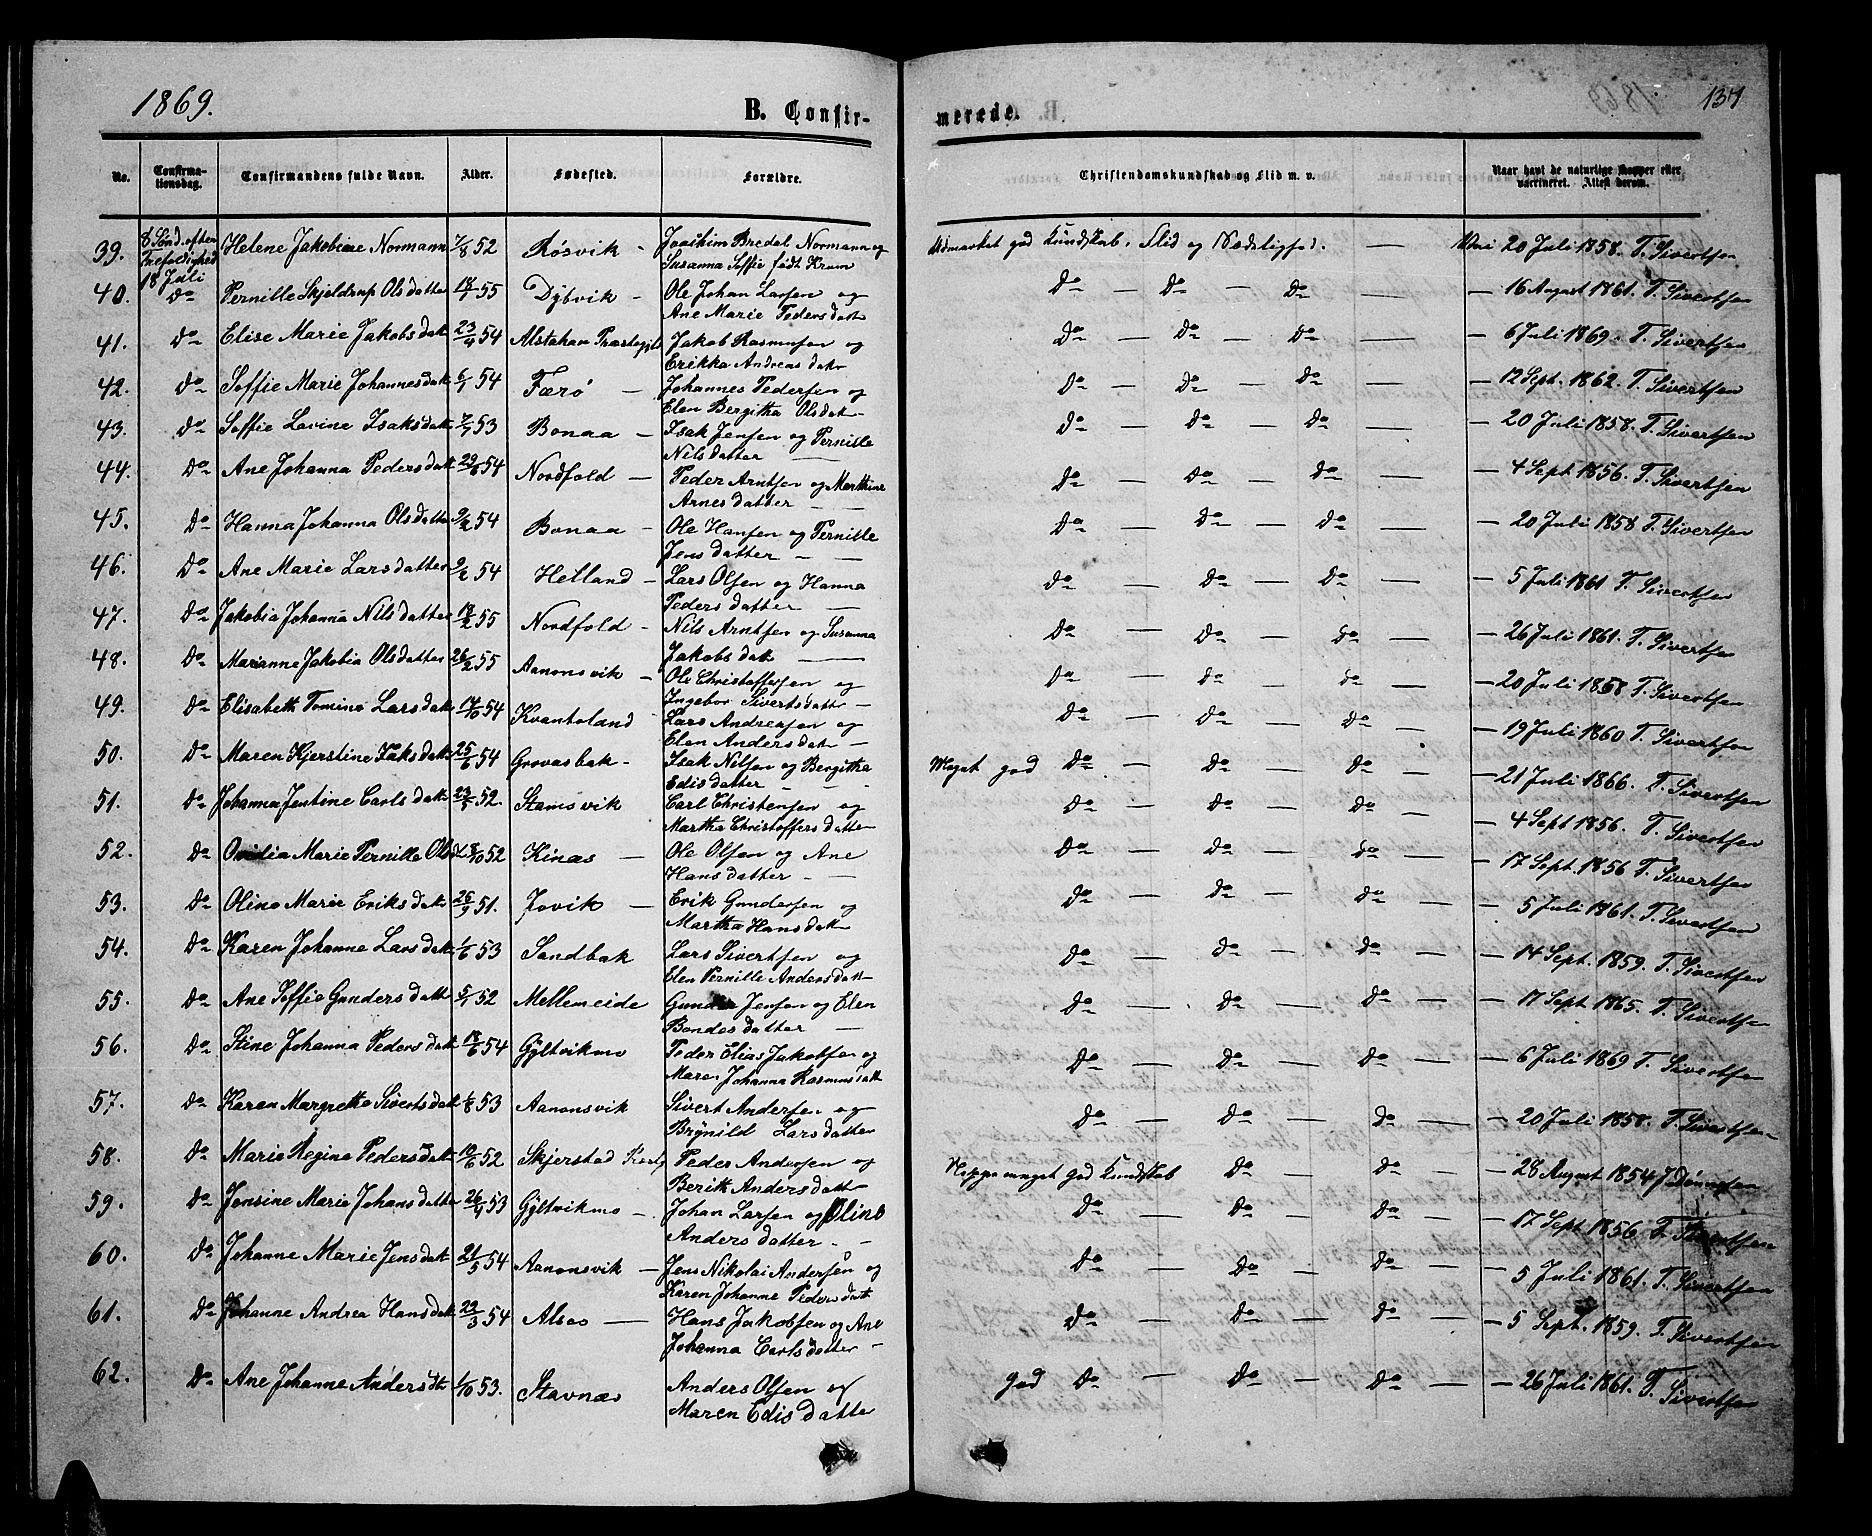 1869.
B. Confir-
merede.
137
No.
Confirma-
tionsdag.
Confirmandens fulde Navn.
Alder.
Fødested.
Forældre.
Christendomskundskab og Flid m. v.
Naar havt de naturlige Kopper eller
vaccineret. Attest derom.
39. 8 Sønd. efter Trefoldighed 18 Juli Helene Jakobine Normann 7/8 52 Røsvik - Joachim Bredal Normann og
Susanna Soffie født Krom
Udmærket god Kundskab, Flid og Sædelighed. — Vac. 20 Juli 1858. T. Sivertsen
40. Do Pernille Skjeldrup Olsdatter 18/1 55 Dybvik - Ole Johan Larsen og
Ane Marie Pedersdatt
Do — Do — Do — — 16 August 1861. T. Sivertsen
41. Do Elise Marie Jakobsdatt 23/4 54 Alstahau Præstegjeld Jakob Rasmusen og
Erikka Andreasdatr
Do — Do — Do — — 6 Juli 1869. T. Sivertsen
42. Do Soffie Marie Johannesdatt 6/1 54 Færø — Johannes Pedersen og
Elen Bergitha Olsdatr
Do — Do — Do — — 12 Sept. 1862. T. Sivertsen
43. Do Soffie Lovine Isaksdatt 7/7 53 Bonaa — Isak Jensen og Pernille
Nilsdatter —
Do — Do — Do — — 20 Juli 1858. T. Sivertsen
44. Do Ane Johanna Pedersdatt 29/6 54 Nordfold — Peder Arntsen og Marthine
Arnesdatter —
Do — Do — Do — — 4 Sept. 1856. T. Sivertsen
45. Do Hanna Johanna Olsdatter 9/2 54 Bonaa — Ole Hansen og Pernille
Jensdatter — —
Do — Do — Do — — 20 Juli 1858 T. Sivertsen
46. Do Ane Marie Larsdatter 9/2 54 Helland — Lars Olsen og Hanna
Pedersdatter —
Do — Do — Do — — 5 Juli 1861 T. Sivertsen
47. Do Jakobia Johanna Nilsdatter 18/2 55 Nordfold — Nils Arntsen og Susanna
Jakobsdatr —
Do — Do — Do — — 26 Juli 1861. T. Sivertsen
48. Do Marianne Jakobia Olsdatter 26/2 55 Aanonsvik — Ole Christoffersen og
Ingebor Sivertsdattr —
Do — Do — Do — — 20 Juli 1858 T. Sivertsen
49. Do Elisabeth Tomine Larsdatt 17/10 54 Kvantoland Lars Andreasen og
Elen Andersdatr —
Do — Do — Do — — 19 Juli 1860 T. Sivertsen
50. Do Maren Kjerstine Isaksdatt 25/6 54 Grovasbak — Isak Nilsen og Bergitha
Edisdatter — —
Meget god Do — Do — Do — — 21 Juli 1866. T. Sivertsen
51. Do Johanna Jentine Carlsdatt 52. Stamsvik Carl Christensen og
Martha Christoffersdatter
Do — Do — Do — — 4 Sept 1856. T. Sivertsen
52. Do Ovidia Marie Pernille Olsd 8/10 52 Kinæs — Ole Olsen og Ane
Hansdatter — —
Do — Do — Do — — 17 Sept. 1856 T. Sivertsen
53. Do Oline Marie Eriksdatr 26/9 51. Jovik — Erik Gundersen og
Martha Hansdatr
Do — Do — Do — — 5 Juli 1861. T. Sivertsen
54. Do Karen Johanne Larsdatt 1/6 53 Sandbak Lars Sivertsen og
Elen Pernille Andersdatt
Do — Do — Do — — 14 Sept. 1859. T. Sivertsen
55. Do Ane Soffie Gundersdatt 5/1 52 Mellemeide Gunder Jensen og Elen
Bondesdatter —
Do — Do — Do — — 17 Sept 1865. T. Sivertsen
56. Do Stine Johanna Pedersdatt 18/6 54 Gyltvikmo Peder Elias Jakobsen og
Maren Johanna Rasmusdatt
Do — Do — Do — — 6 Juli 1869 T. Sivertsen
57. Do Karen Margrethe Sivertsdatt 1/8 53 Aanonsvik Sivert Andersen og
Brynild Larsdatter
Do — Do — Do — — 20 Juli 1858. T. Sivertsen
58. Do Marie Regine Pedersdatt 10/6 52 Skjerstad Præstg Peder Andersen og
Berith Andersdatt
Neppe meget god Kundskab Do — Do — — 28 August 1854
59. Do Jensine Marie Johansdatter 53 Gyltvikmo — Johan Larsen og Oline
Andersdatter —
Do — Do — Do — — 17 Sept. 1856 T. Sivertsen
60. Do Johanne Marie Jensdatt 21/5 54 Aanonsvik — Jens Nikolai Andersen og
Karen Johanne Pedersdatt
Do — Do — Do — — 5 Juli 1861. T. Sivertsen
61. Do Johanne Andrea Hansdatt 22/3 54 Alsos — Hans Jakobsen og Ane
Johanna Carlsdatter —
Do — Do — Do — — 5 Sept. 1859. T. Sivertsen
62. Do Ane Johanne Andersdtr 1/10 53. Stavnæs Anders Olsen og
Maren Edisdatter
god Do — Do — Do — — 26 Juli 1861. T. Sivertsen